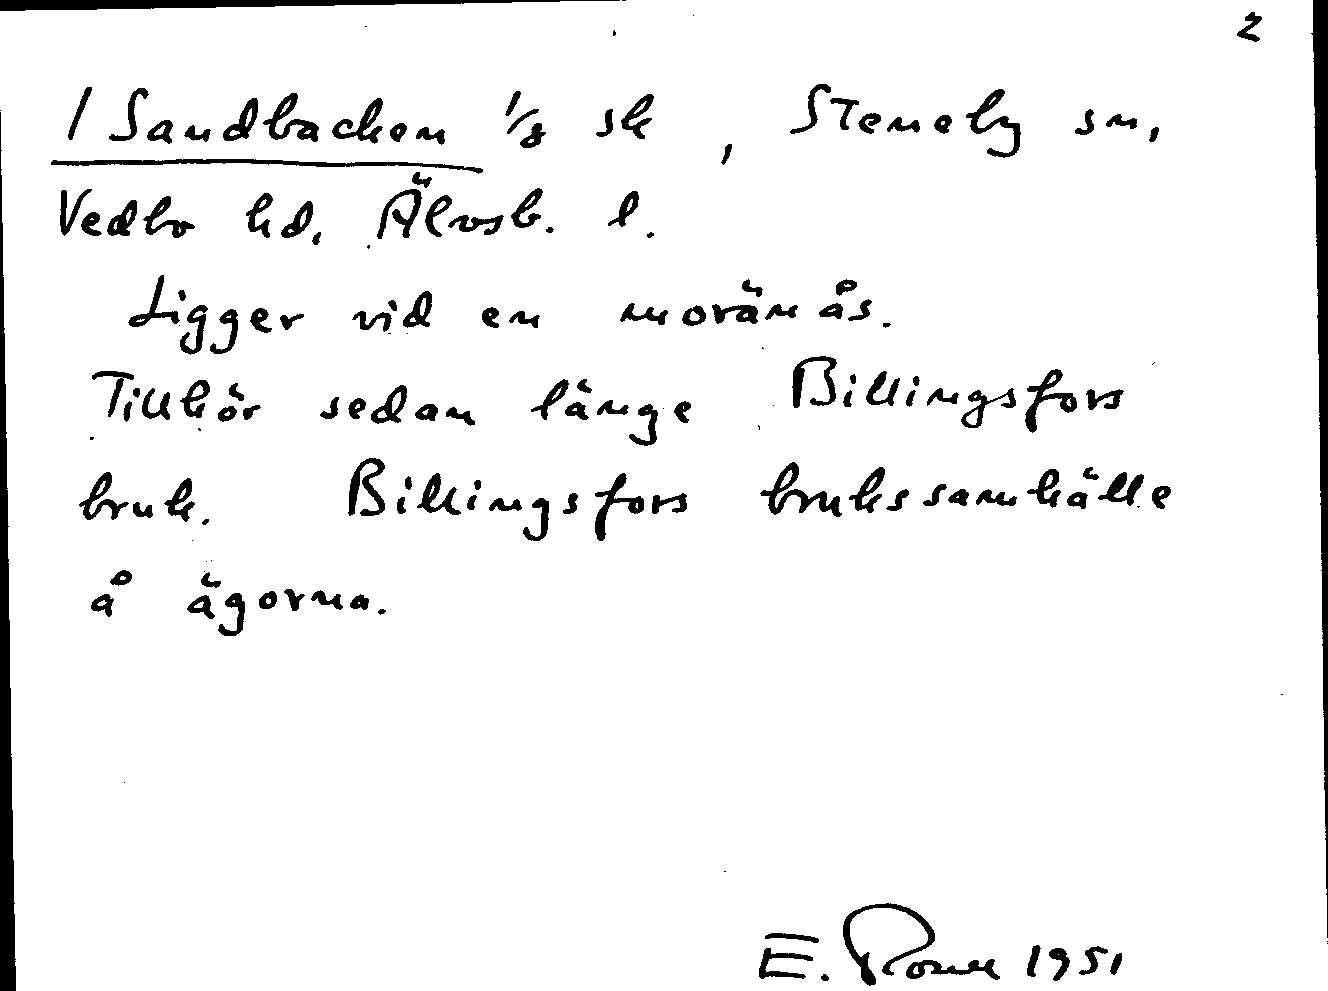 2
1 Sandbacken 1/8 sk, Steneby sn,
Vedbo hd. Älvsb. l.
Ligger vid en moränås.
Tillhör sedan länge Billingsfors
bruk. Billingsfors brukssamhälle
å ägorna.
E. 1951